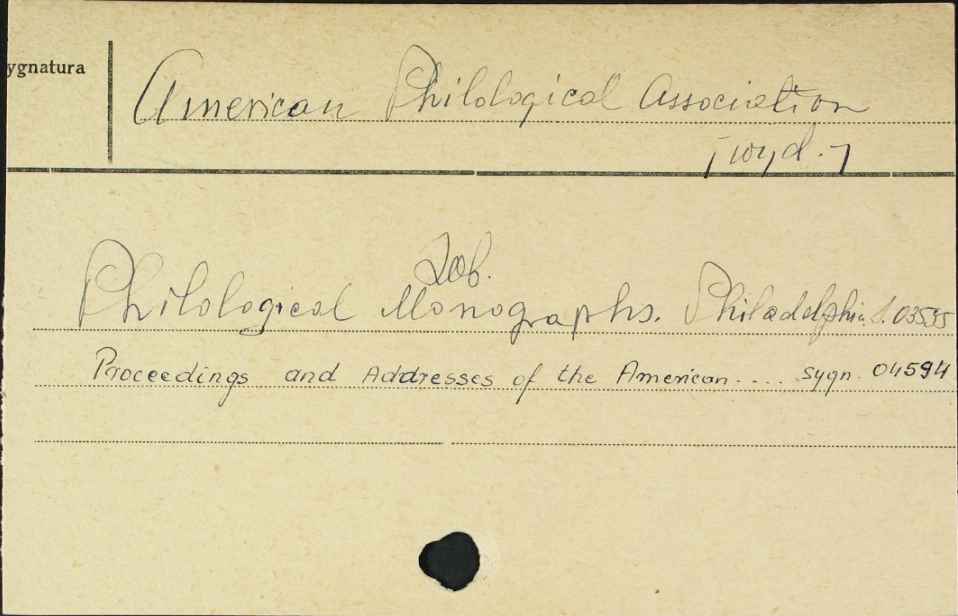 ygnatura
American Philological Association
[wyd.]
Zob.
Philological Monographs. Philadelphia. S. 03535
Proceedings and Addresses of the American .... sygn. 04594